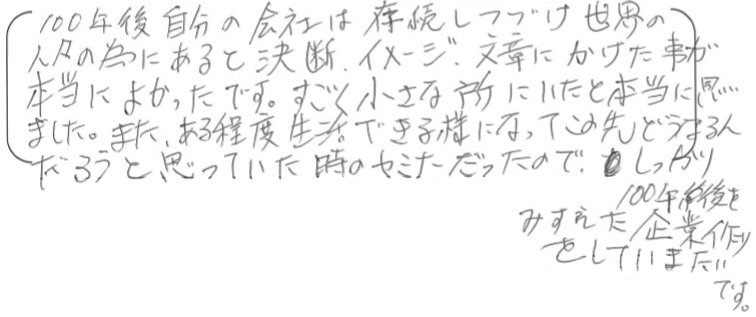 100年後自分の会社は存続しつづけ世界の
人々の為にあると決断、イメージ、文章にかけた事が
本当によかったです。すごく小さな所にいたと本当に思い
ました。また、ある程度生活できる様になってこの先どうなるん
だろうと思っていた時のセミナーだったので、しっかり
100年後を
みすえた企業作り
をしていきたい
です。